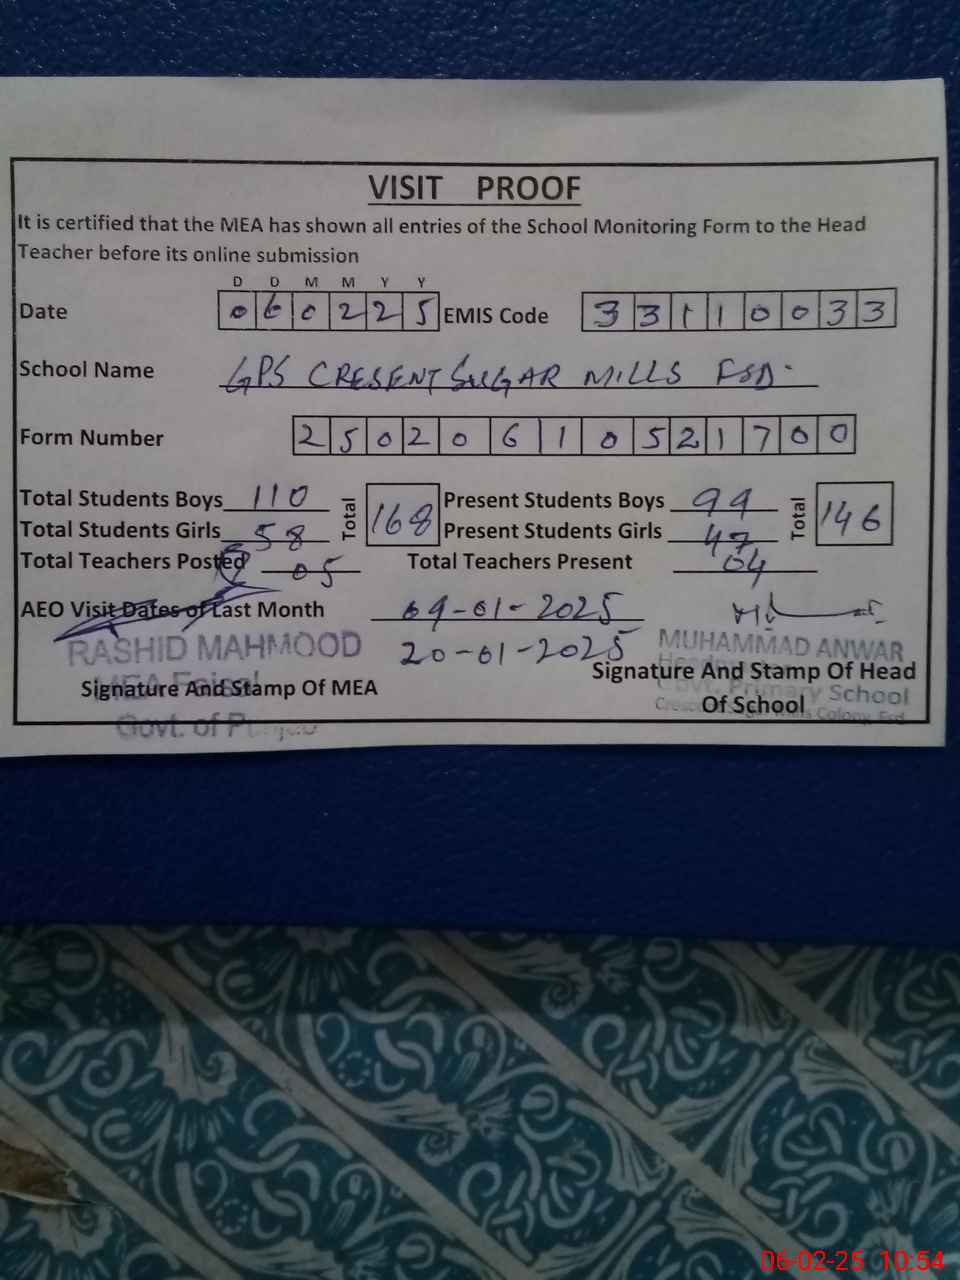 VISIT PROOF
It is certified that the MEA has shown all entries of the School Monitoring Form to the Head
Teacher before its online submission
D D M M Y Y
Date 0 6 0 2 2 5 EMIS Code 3 3 1 1 0 0 3 3
School Name GPS CRESENT SUGAR MILLS FSD.
Form Number 2 5 0 2 0 6 1 0 5 2 1 7 0 0
Total Students Boys 110 Total 168 Present Students Boys 99 Total 146
Total Students Girls 58 Present Students Girls 47
Total Teachers Posted 05 Total Teachers Present 04
AEO Visit Dates of Last Month 09-01-2025
20-01-2025
RASHID MAHMOOD
MEA
Signature And Stamp Of MEA
Govt. of
MUHAMMAD ANWAR
Signature And Stamp Of Head
Govt. Primary School
Of School
Colony, Fsd
06-02-25 10:54